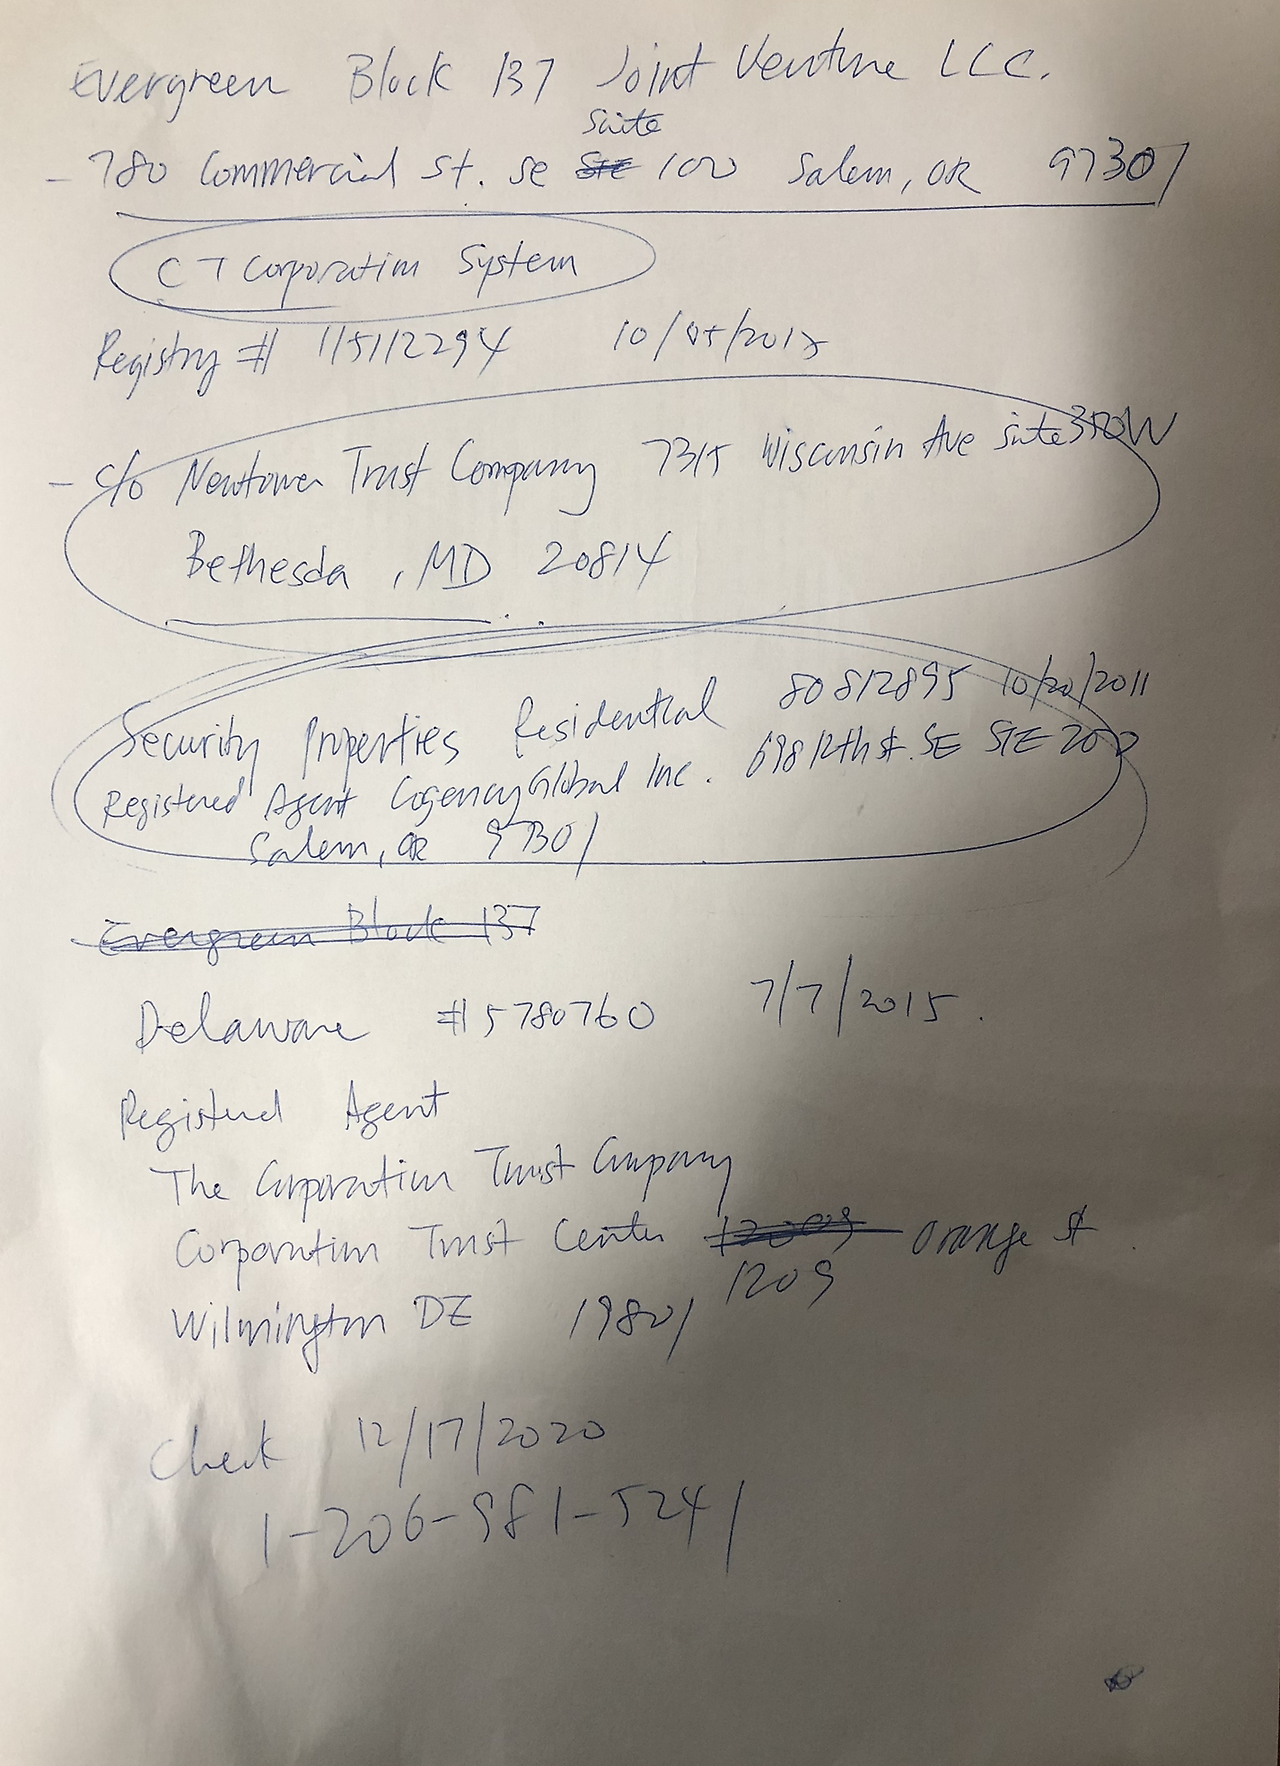 Evergreen Block 137 Joint Venture LLC.
Suite
- 780 Commercial St. SE STE 100 Salem, OR 97301
CT Corporation System
Registry # 115112294 10/05/2015
- c/o Newtower Trust Company 7315 Wisconsin Ave Suite 350W
Bethesda, MD 20814
Security Properties Residential 80812895 10/20/2011
Registered Agent Cogency Global Inc. 698 12th St. SE STE 200
Salem, OR 97301
Evergreen Block 137
Delaware #5780760 7/7/2015.
Registered Agent
The Corporation Trust Company
Corporation Trust Center 12009 Orange St
1209
Wilmington DE 19801
Check 12/17/2020
1-206-981-5241